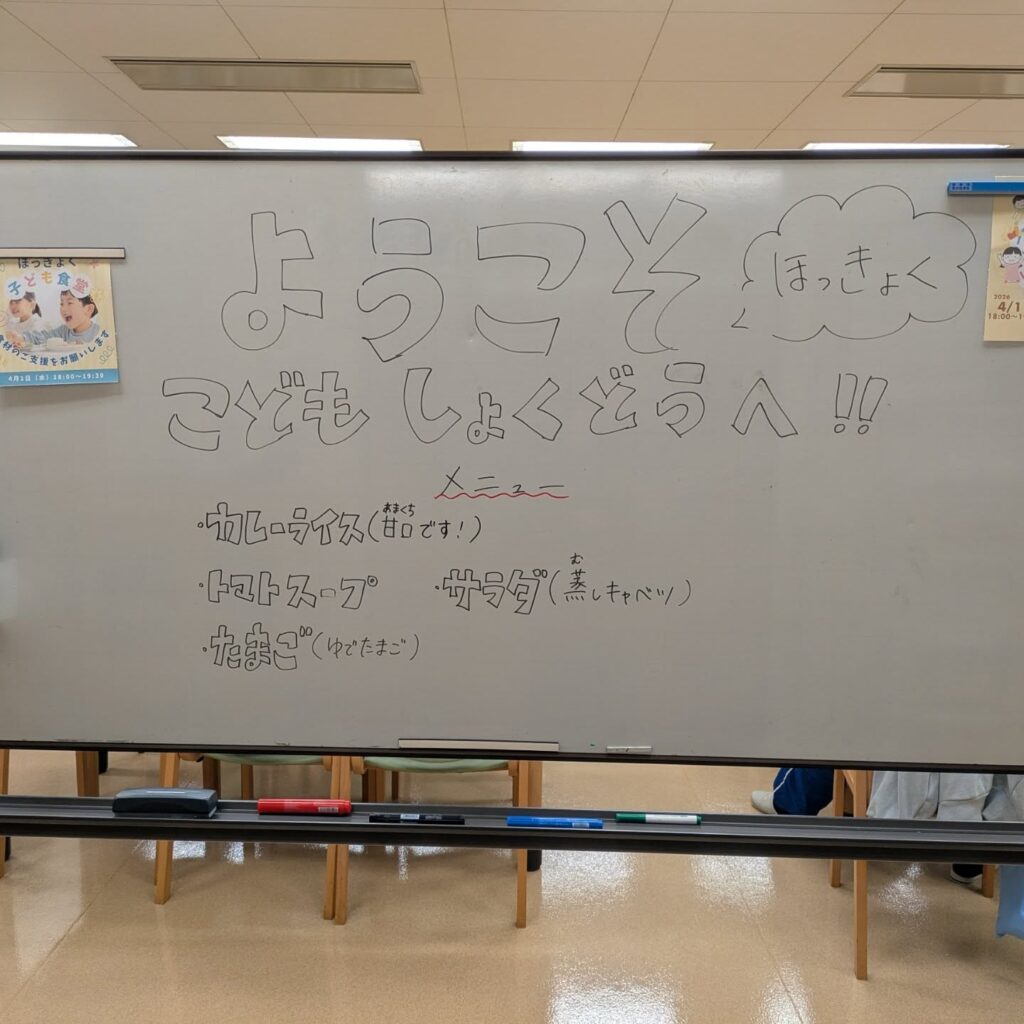 ようこそ
ほっきょく
こどもしょくどうへ!!
メニュー
・カレーライス(甘口です!)
おまくち
・トマトスープ ・サラダ(蒸しキャベツ)
む
・たまご(ゆでたまご)
ほっきょく
子ども食堂
食材のご支援をお願いします
4月1日(水)18:00〜19:30
2026
4/1
18:00〜1